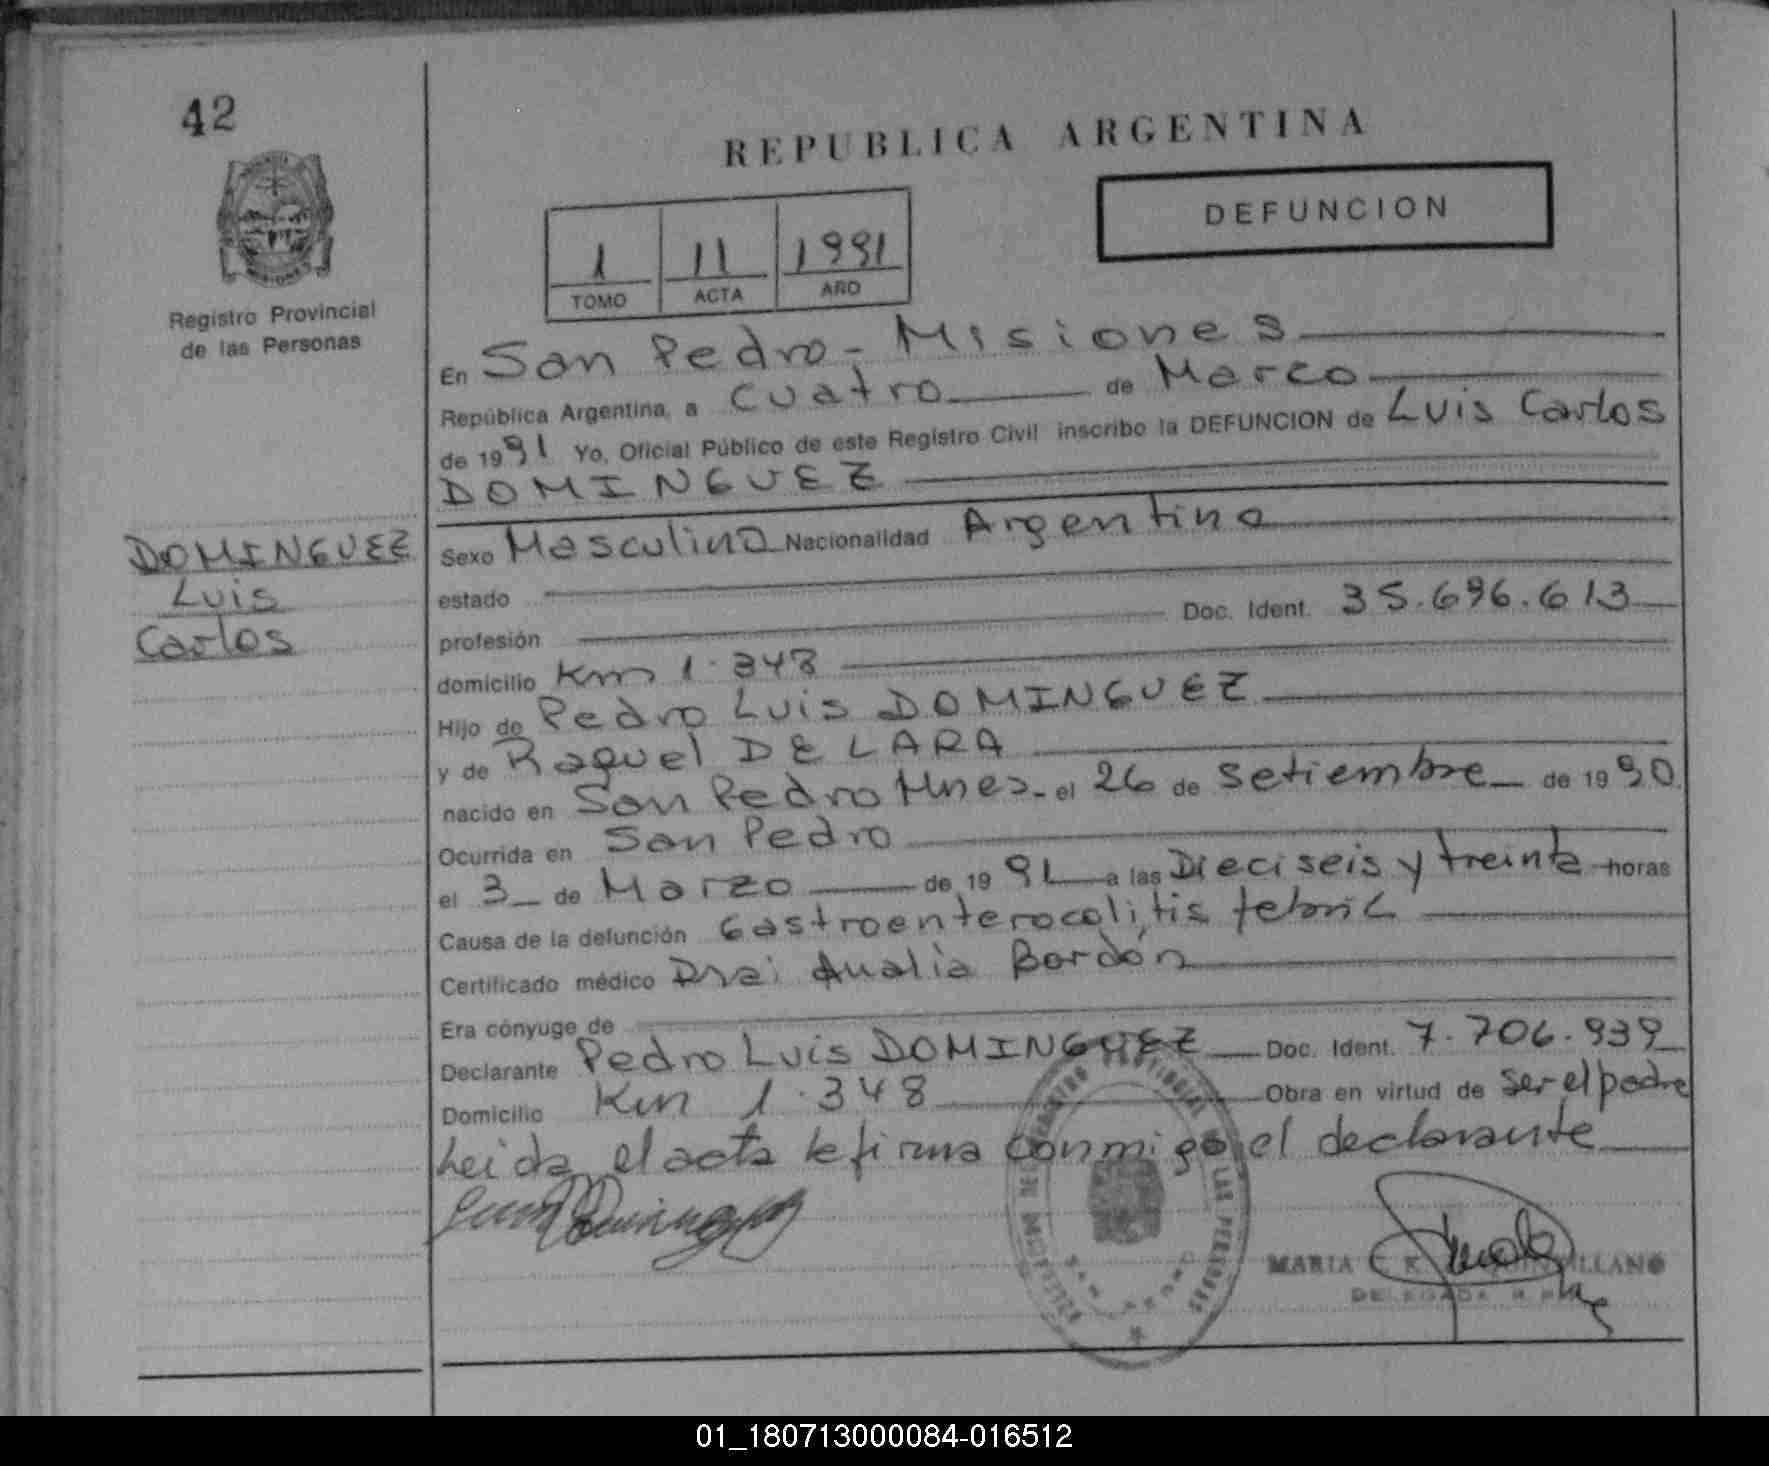 42
REPUBLICA ARGENTINA
DEFUNCION
1 11 1991
TOMO ACTA AÑO
Registro Provincial
de las Personas
En San Pedro - Misiones
República Argentina, a cuatro de Marzo
de 1991 Yo, Oficial Público de este Registro Civil inscribo la DEFUNCION de Luis Carlos
DOMINGUEZ
DOMINGUEZ
Luis
Carlos
Sexo Masculino Nacionalidad Argentina
estado
profesión Doc. Ident. 35.696.613
domicilio Km 1.348
Hijo de Pedro Luis DOMINGUEZ
y de Raquel DE LARA
nacido en San Pedro Mnes. el 26 de setiembre de 1990
Ocurrida en San Pedro
el 3 de Marzo de 1991 a las Dieciseis y treinta horas
Causa de la defunción Gastroenterocolitis febril
Certificado médico Dra: Analia Bordón
Era cónyuge de
Declarante Pedro Luis DOMINGUEZ Doc. Ident. 7.706.939
Domicilio Km 1.348 Obra en virtud de ser el padre
Leida el acta la firma conmigo el declarante
REGISTRO PROVINCIAL DE LAS PERSONAS
SAN PEDRO
MARIA
DELEGADA
01_180713000084-016512